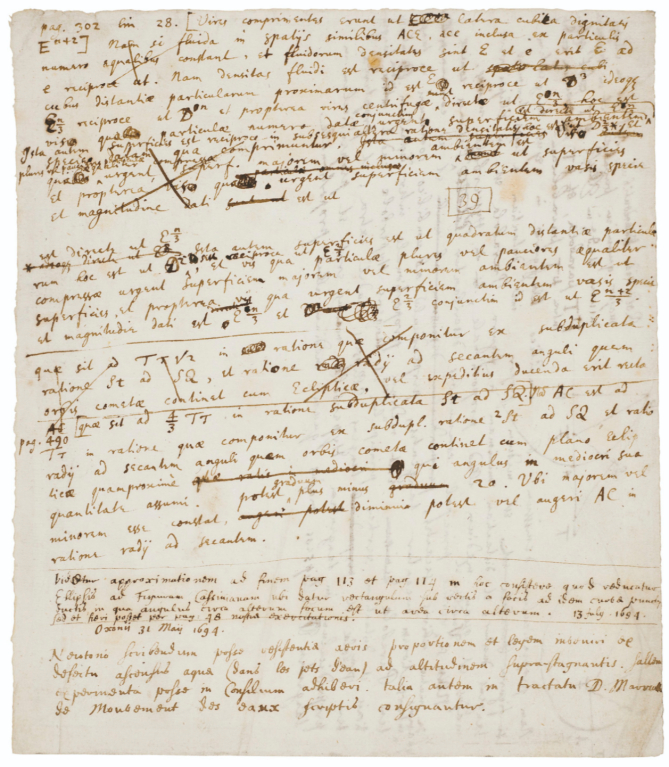 pag. 302 lin 28. [Vires comprimentes erunt ut latera cubica dignitatis
E^{n+2}] Nam si fluida in spatijs similibus ACE, ace inclusa ex particulis
numero aequalibus constant, et fluidorum densitates sint E et e erit E ad
e reciproce ut. Nam densitas fluidi est reciproce ut
cubus distantiae particularum proximarum id est E reciproce ut D^3 ideoque
E^{n/3} reciproce ut D^n et propterea vires centrifugae directe ut E^{n/3} hoc est
vis qua particulae numero datae urgent superficiem ambientem
Ista autem superficies est reciproce in
qua urgent superf. majorem vel minorem ambientem est ut superficies
et propterea vis qua urgent superficiem ambientem vasis specie
et magnitudine dati est ut
39
est directe ut E^{n/3}. Ista autem superficies est ut quadratum distantiae particula-
rum hoc est ut D^2 seu reciproce ut E^{2/3}
compressae urgent superficiem majorem vel minorem ambientem est ut
superficies, et propterea vis qua urgent superficiem ambientem vasis specie
et magnitudine dati est ut E^{n/3} et E^{2/3} conjunctim id est ut E^{n+2/3}.
quae sit ad T x V2 in ratione quae componitur ex subduplicata
ratione St ad SQ, et ratione radij ad secantem anguli quem
orbis cometae continet cum Ecliptica, vel expeditius ducenda erit recta
quae sit ad 4/3 TT in ratione subduplicata St ad SQ. AC est ad
pag. 490
TT in ratione quae componitur ex subdupl. ratione 2St ad SQ et ratio
radij ad secantem anguli quem orbis cometae continet cum plano Eclip
ticae quamproxime qui angulus in mediocri sua
quantitate assumi potest graduum plus minus 20. Ubi majorem vel
minorem esse constat, diminuio potest vel augeri AC in
ratione radij ad secantem.
Videtur approximationem ad finem pag 113 et pag 114 in hoc consistere quod reducatur
Ellipsis ad Figuram Cassimanam ubi datur rectangulum sub rectis a focis ad idem curvae punctum
ductis in qua angulus circa alterum focum est ut area circa alterum. 13 July 1694.
sed et fieri potest per pag 48 nostra exercitationis.
Oxonii 31 Maij 1694.
Neutono scribendum posse resistentia aeris proportionem et legem inveniri ex
defectu ascensus aquae (dans les jets d'eau) ad altitudinem suprastagnantis. saltem
experimenta posse in Consilium adhiberi. talia autem in tractatu D. Mariotte
de Mouvement des eaux scriptis consignantur.